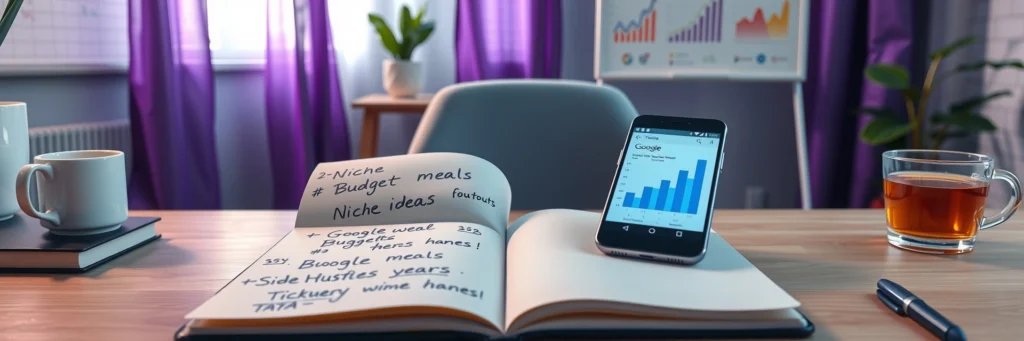 2-Niche
# Budget meals
Niche ideas foutouts
+ Google weal 332
Buggetts
#2 thers hanes!
35Y Boogle meals
+ Side Hustles years.
Tickuery wime hanes!
TATA –
Google